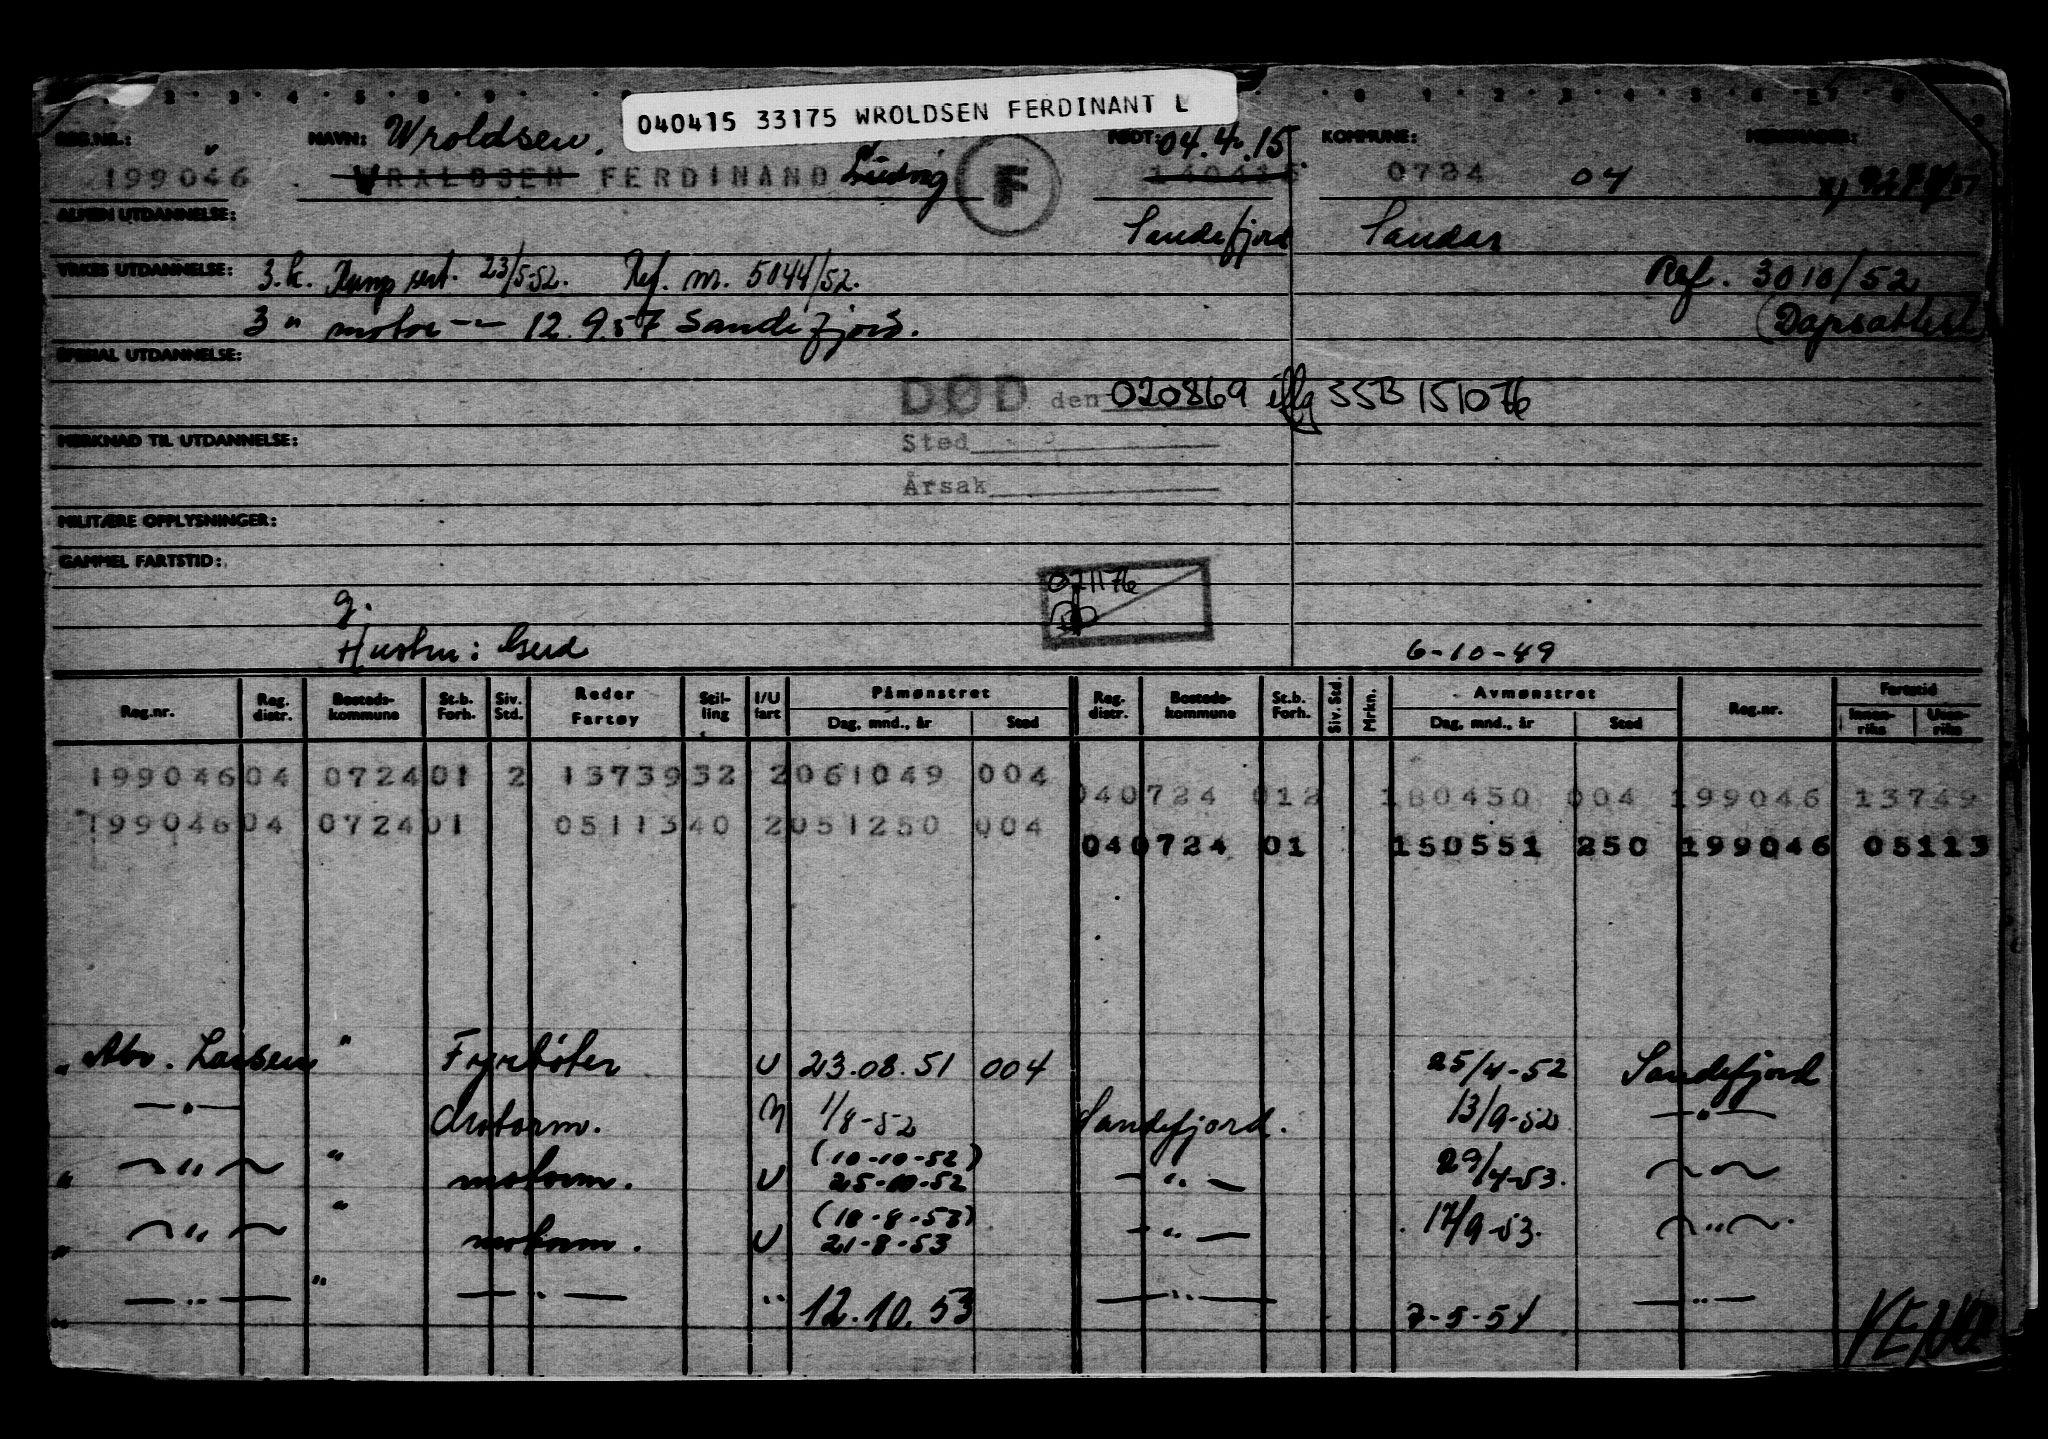 040415 33175 WROLDSEN FERDINANT L
REG.NR.: NAVN: Wroldsen. FØDT: 04.4.15 KOMMUNE: MERKNADER:
199046 WRALDSEN FERDINAND Ludvig F 140415 0724 04
ALMEN UTDANNELSE: Sandefjord Sandar
YRKES UTDANNELSE: 3.k. sert. 23/5-52. Ref. nr. 5044/52. Ref. 3010/52
3 " motor -"- 12.9.57 Sandefjord. (Dåpsattest)
SPESIAL UTDANNELSE:
DØD den 020869 iflg SSB 151076
MERKNAD TIL UTDANNELSE: Sted
Årsak
MILITÆRE OPPLYSNINGER:
GAMMEL FARTSTID:
021176
g.
Hustru: Gerd 6-10-49
Reg.nr. Reg. distr. Bosteds-kommune St.b. Forh. Siv. Std. Reder Fartøy Stil-ling I/U fart Påmønstret Dag, mnd., år Sted Reg. distr. Bosteds-kommune St.b. Forh. Siv. Std. Mrkn. Avmønstret Dag, mnd., år Sted Reg.nr. Fartstid Innen-riks Uten-riks
199046 04 0724 01 2 13739 32 2 061049 004 04 0724 012 180450 004 199046 13749
199046 04 0724 01 05113 40 2 051250 004 04 0724 01 150551 250 199046 05113
" Abr. Larsen " Fyrbøter U 23.08.51 004 25/4-52 Sandefjord
-"- Motorm. N 1/8-52 Sandefjord. 13/9-52 -"-
" -"- " motorm. U (10-10-52) 25-10-52 -"- 29/4-53. -"-
" -"- " motorm. U (18-8-53) 21-8-53 -"- 17/9-53. -"-
" -"- " -"- " 12.10.53 -"- 7-5-54 -"-
VEND